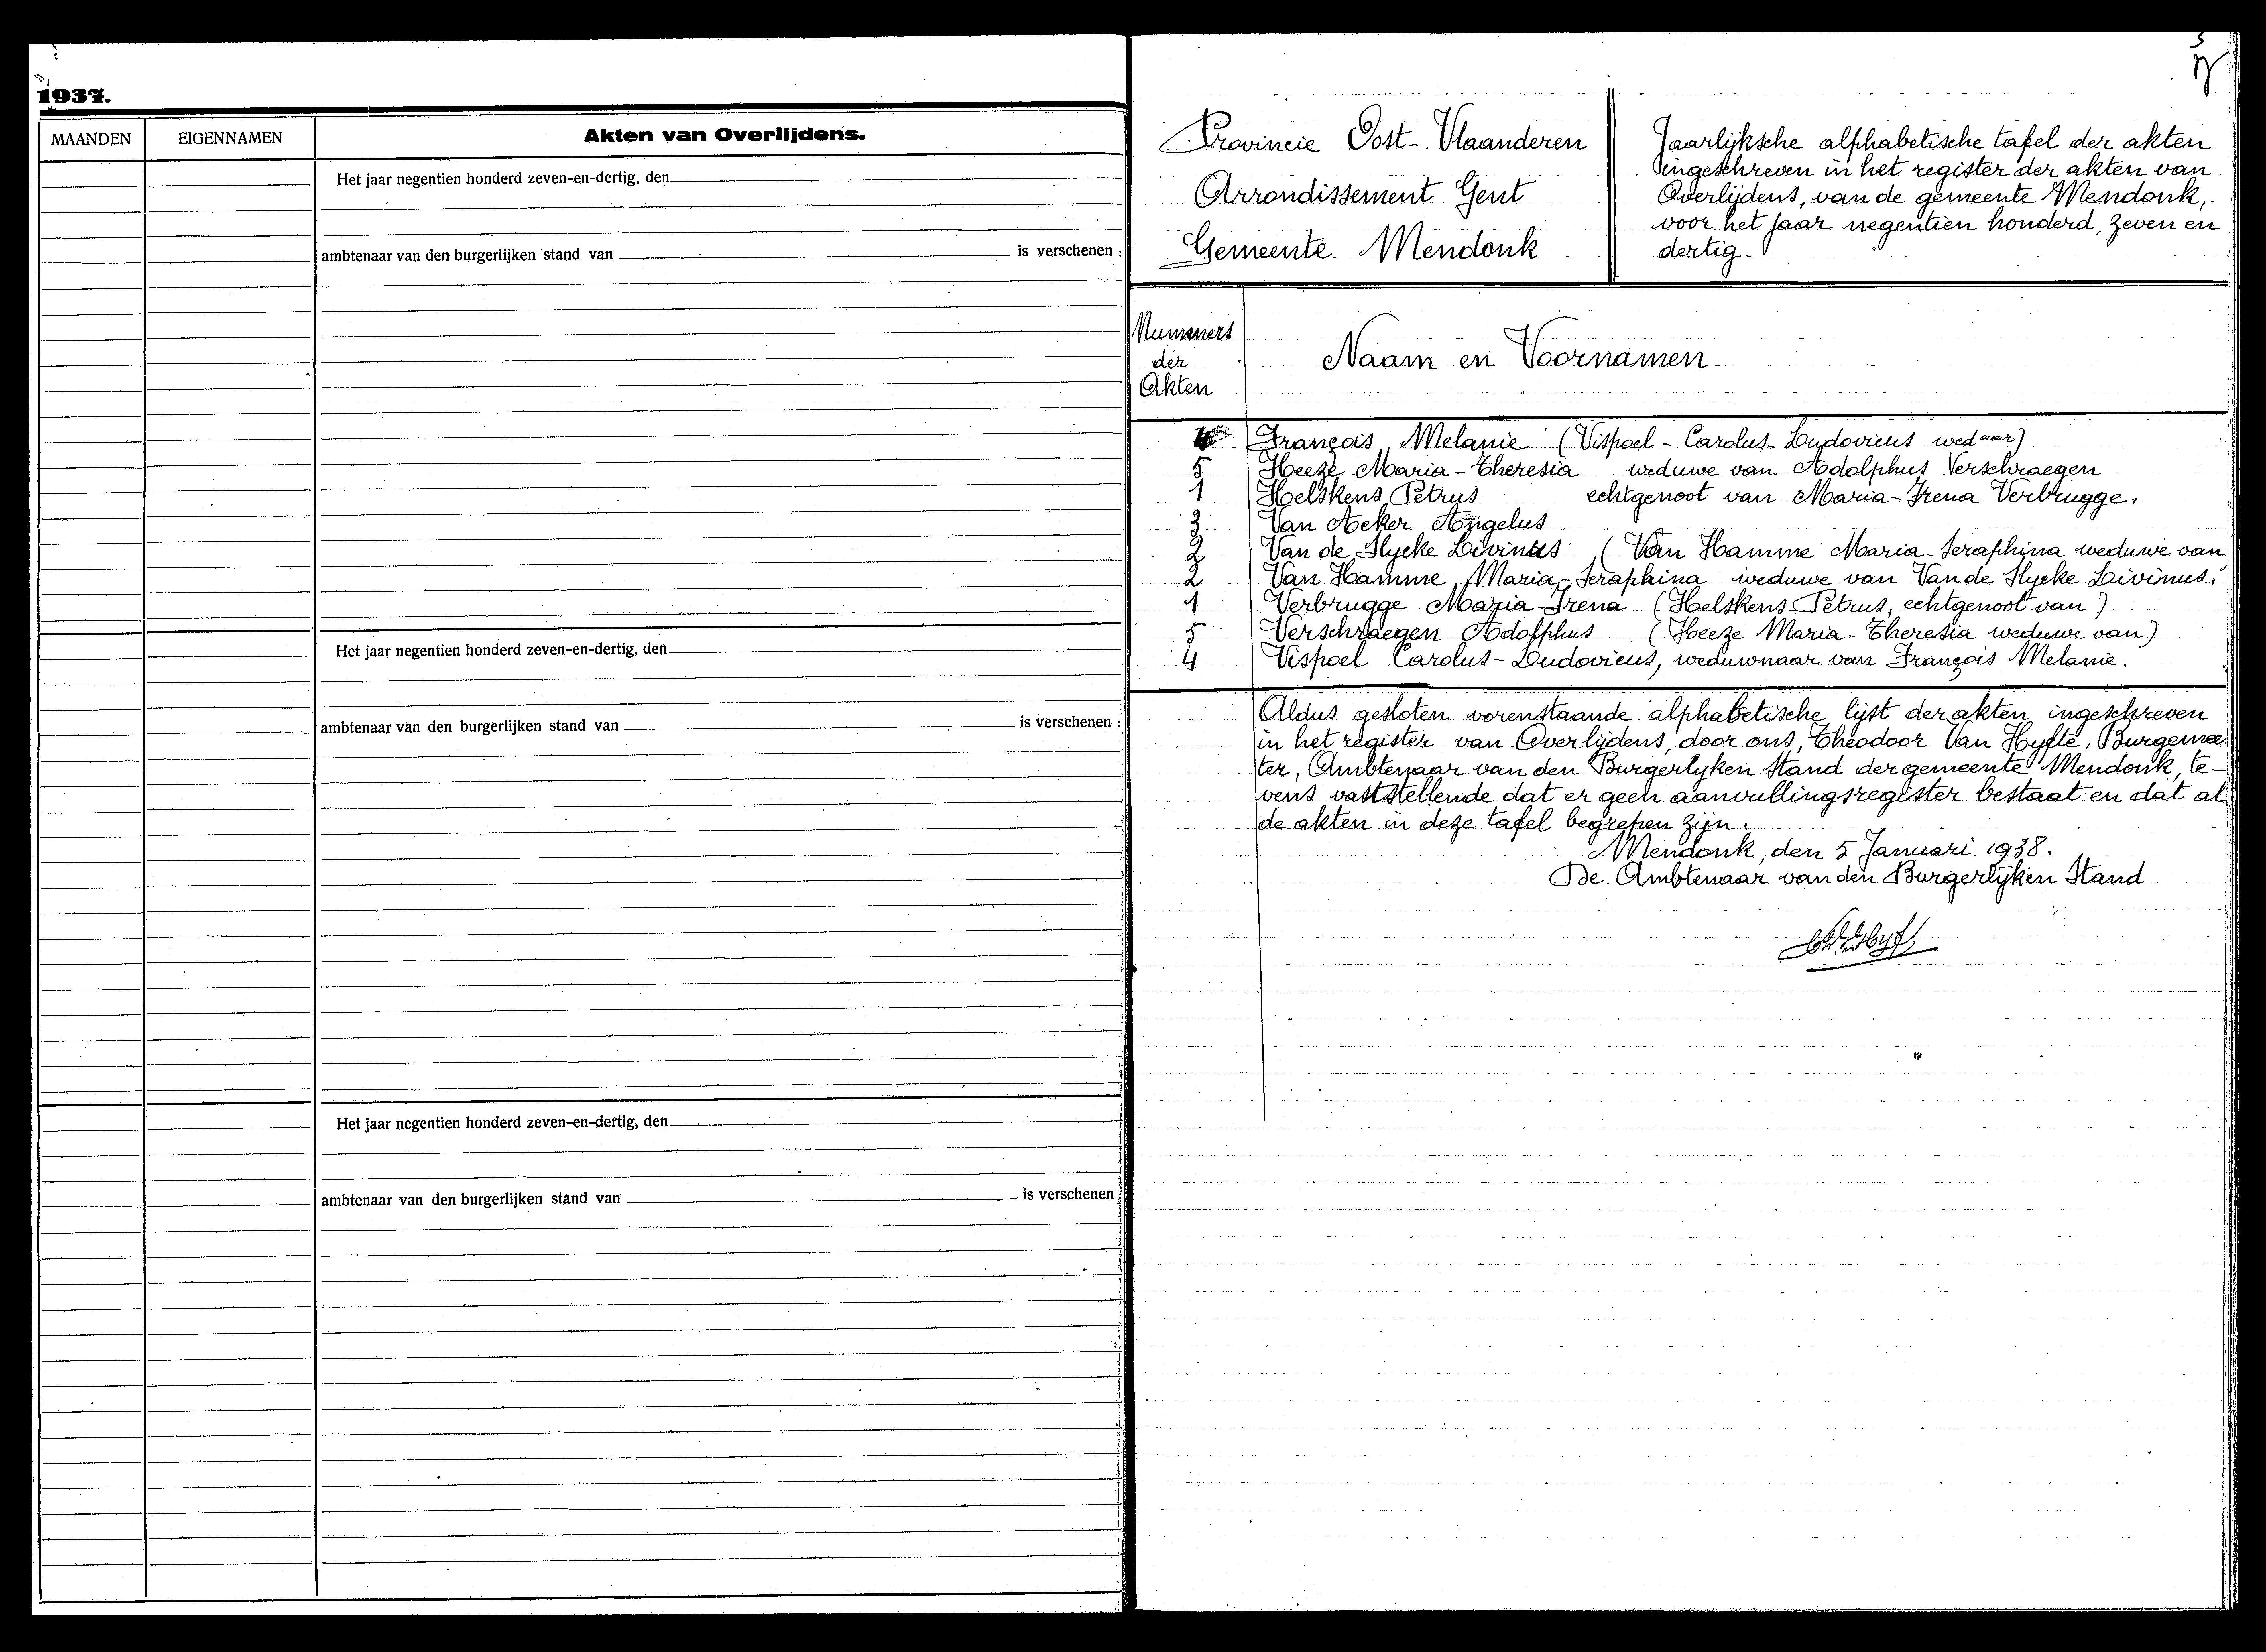 1937.
MAANDEN EIGENNAMEN Akten van Overlijdens.
Het jaar negentien honderd zeven-en-dertig, den
ambtenaar van den burgerlijken stand van is verschenen :
Het jaar negentien honderd zeven-en-dertig, den
ambtenaar van den burgerlijken stand van is verschenen :
Het jaar negentien honderd zeven-en-dertig, den
ambtenaar van den burgerlijken stand van is verschenen :
Provincie Oost-Vlaanderen
Arrondissement Gent
Gemeente Mendonk
Jaarlijksche alphabetische tafel der akten
ingeschreven in het register der akten van
Overlijdens, van de gemeente Mendonk,
voor het jaar negentien honderd, zeven en
dertig.
Nummers
der
Akten
Naam en Voornamen
4 François, Melanie (Vispoel-Carolus-Ludovicus wednaar)
5 Heeze Maria-Theresia weduwe van Adolphus Verschraegen
1 Helskens Petrus echtgenoot van Maria-Irena Verbrugge.
3 Van Acker Angelus
2 Van de Slycke Livinus (Van Hamme Maria-Seraphina weduwe van
2 Van Hamme, Maria-Seraphina weduwe van Van de Slycke Livinus.
1 Verbrugge Maria-Irena (Helskens Petrus, echtgenoot van)
5 Verschraegen Adolphus (Heeze Maria-Theresia weduwe van)
4 Vispoel Carolus-Ludovicus, weduwnaar van François Melanie.
Aldus gesloten vorenstaande alphabetische lijst der akten ingeschreven
in het register van Overlijdens, door ons, Theodoor Van Hyfte, Burgemee
ter, Ambtenaar van den Burgerlyken Stand der gemeente Mendonk, te-
vens vaststellende dat er geen aanvullingsregister bestaat en dat al
de akten in deze tafel begrepen zijn.
Mendonk, den 5 Januari 1938.
De Ambtenaar van den Burgerlijken Stand